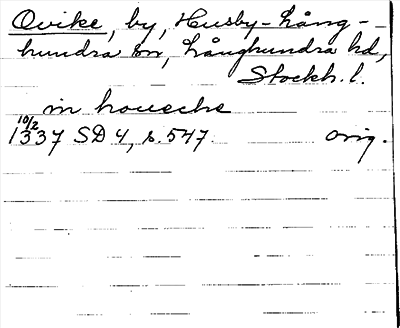 Ovike, by, Husby-Lång-
hundra sn, Långhundra hd,
Stockh. l.
in houeche
10/2
1337 SD 4, s. 547. orig.